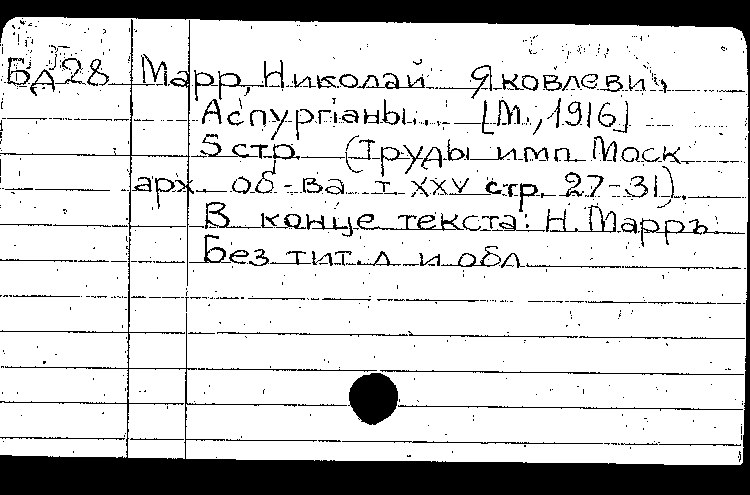 Бд 28 Марр, Николай Яковлевич
Аспургiаны... [М., 1916]
5 стр. (Труды имп. Моск.
арх. об-ва т. XXV стр. 27-31).
В конце текста: Н. Марръ.
Без тит. л. и обл.